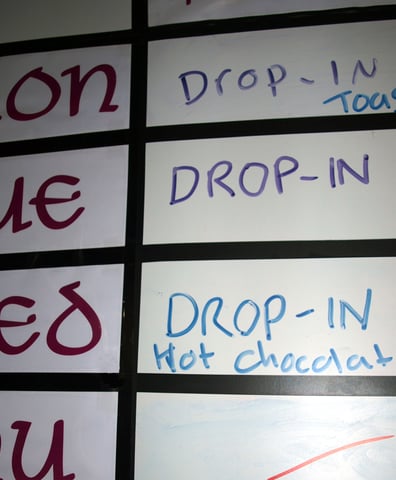 on
DROP-IN
Toas
ue
DROP-IN
ed
DROP-IN
Hot chocolat
hu